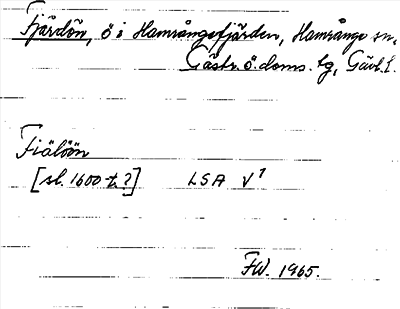 Fjärdön, ö i Hamrångefjärden, Hamrånge sn,
Gästr. ö. doms. tg, Gävl. l.
Fiälöön
[sl. 1600-t.?] LSA V¹
FW. 1965.